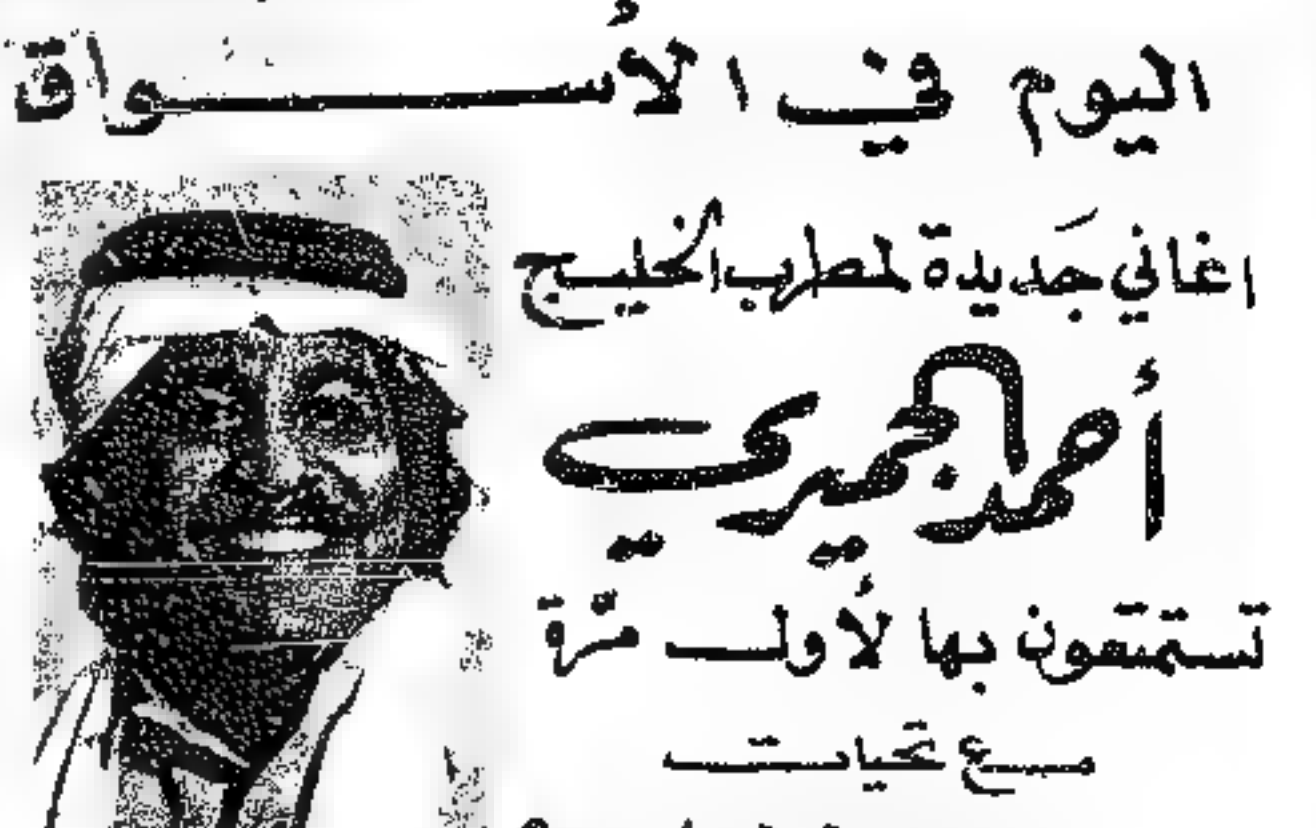 اليوم في الأسواق
اغاني جَديدة لمطرب الخليج
أحمد الجميري
تستمتعون بها لأول مرّة
مع تحيات